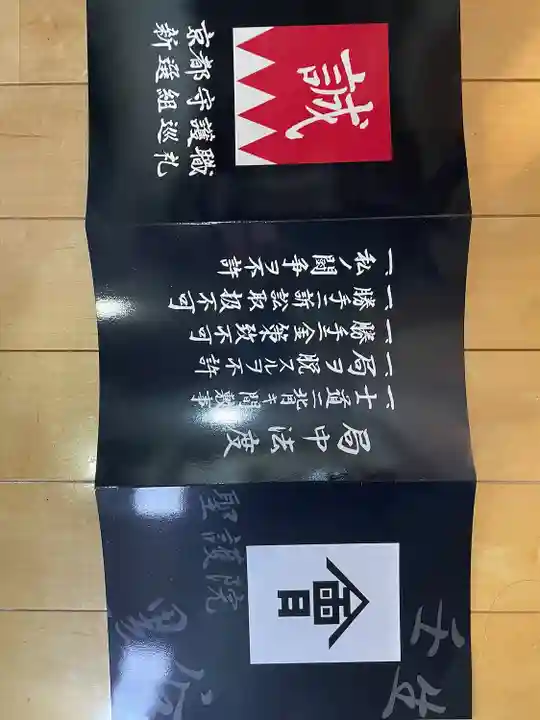 誠
京都守護職
新選組巡礼
局中法度
一、士道ニ背キ間敷事
一、局ヲ脱スルヲ不許
一、勝手ニ金策致不可
一、勝手ニ訴訟取扱不可
一、私ノ闘争ヲ不許
會
聖護院
壬生
黒谷